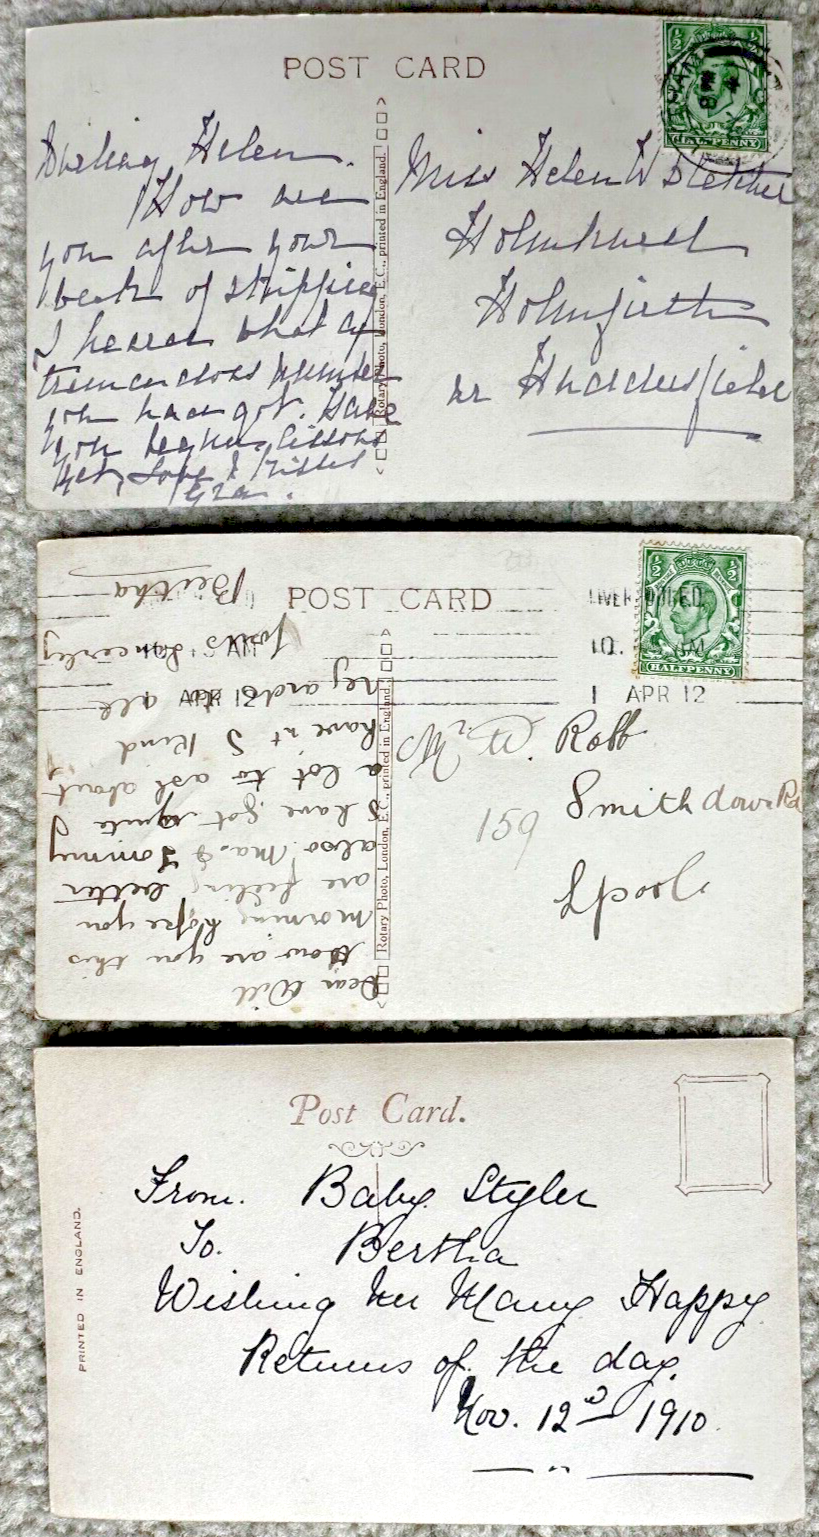 POST CARD
½ ½
HALFPENNY
8 PM
4
Darling Helen.
How are
you after your
week of skipping
I hear what a
tremendous number
you have got. Have
you begun lessons
yet, Love & Kisses
Rotary Photo, London, E.C., printed in England.
Miss Helen W
Holmfirth
nr Huddersfield
POST CARD
½ ½
HALFPENNY
LIVERPOOL
10. AM
1 APR 12
AM
APR 12
Dear Will
How are you this
morning hope you
are feeling better
also Ma. & Tommy
I have got quite
a lot to ask about
have n't I Kind
regards to all
Yours Sincerely
Bertha
Rotary Photo, London, E.C., printed in England.
Mr W. Robb
159 Smithdown Rd
Lpool
Post Card.
PRINTED IN ENGLAND.
From. Baby Styler
To. Bertha
Wishing her Many Happy
Returns of the day.
Nov. 12th 1910.